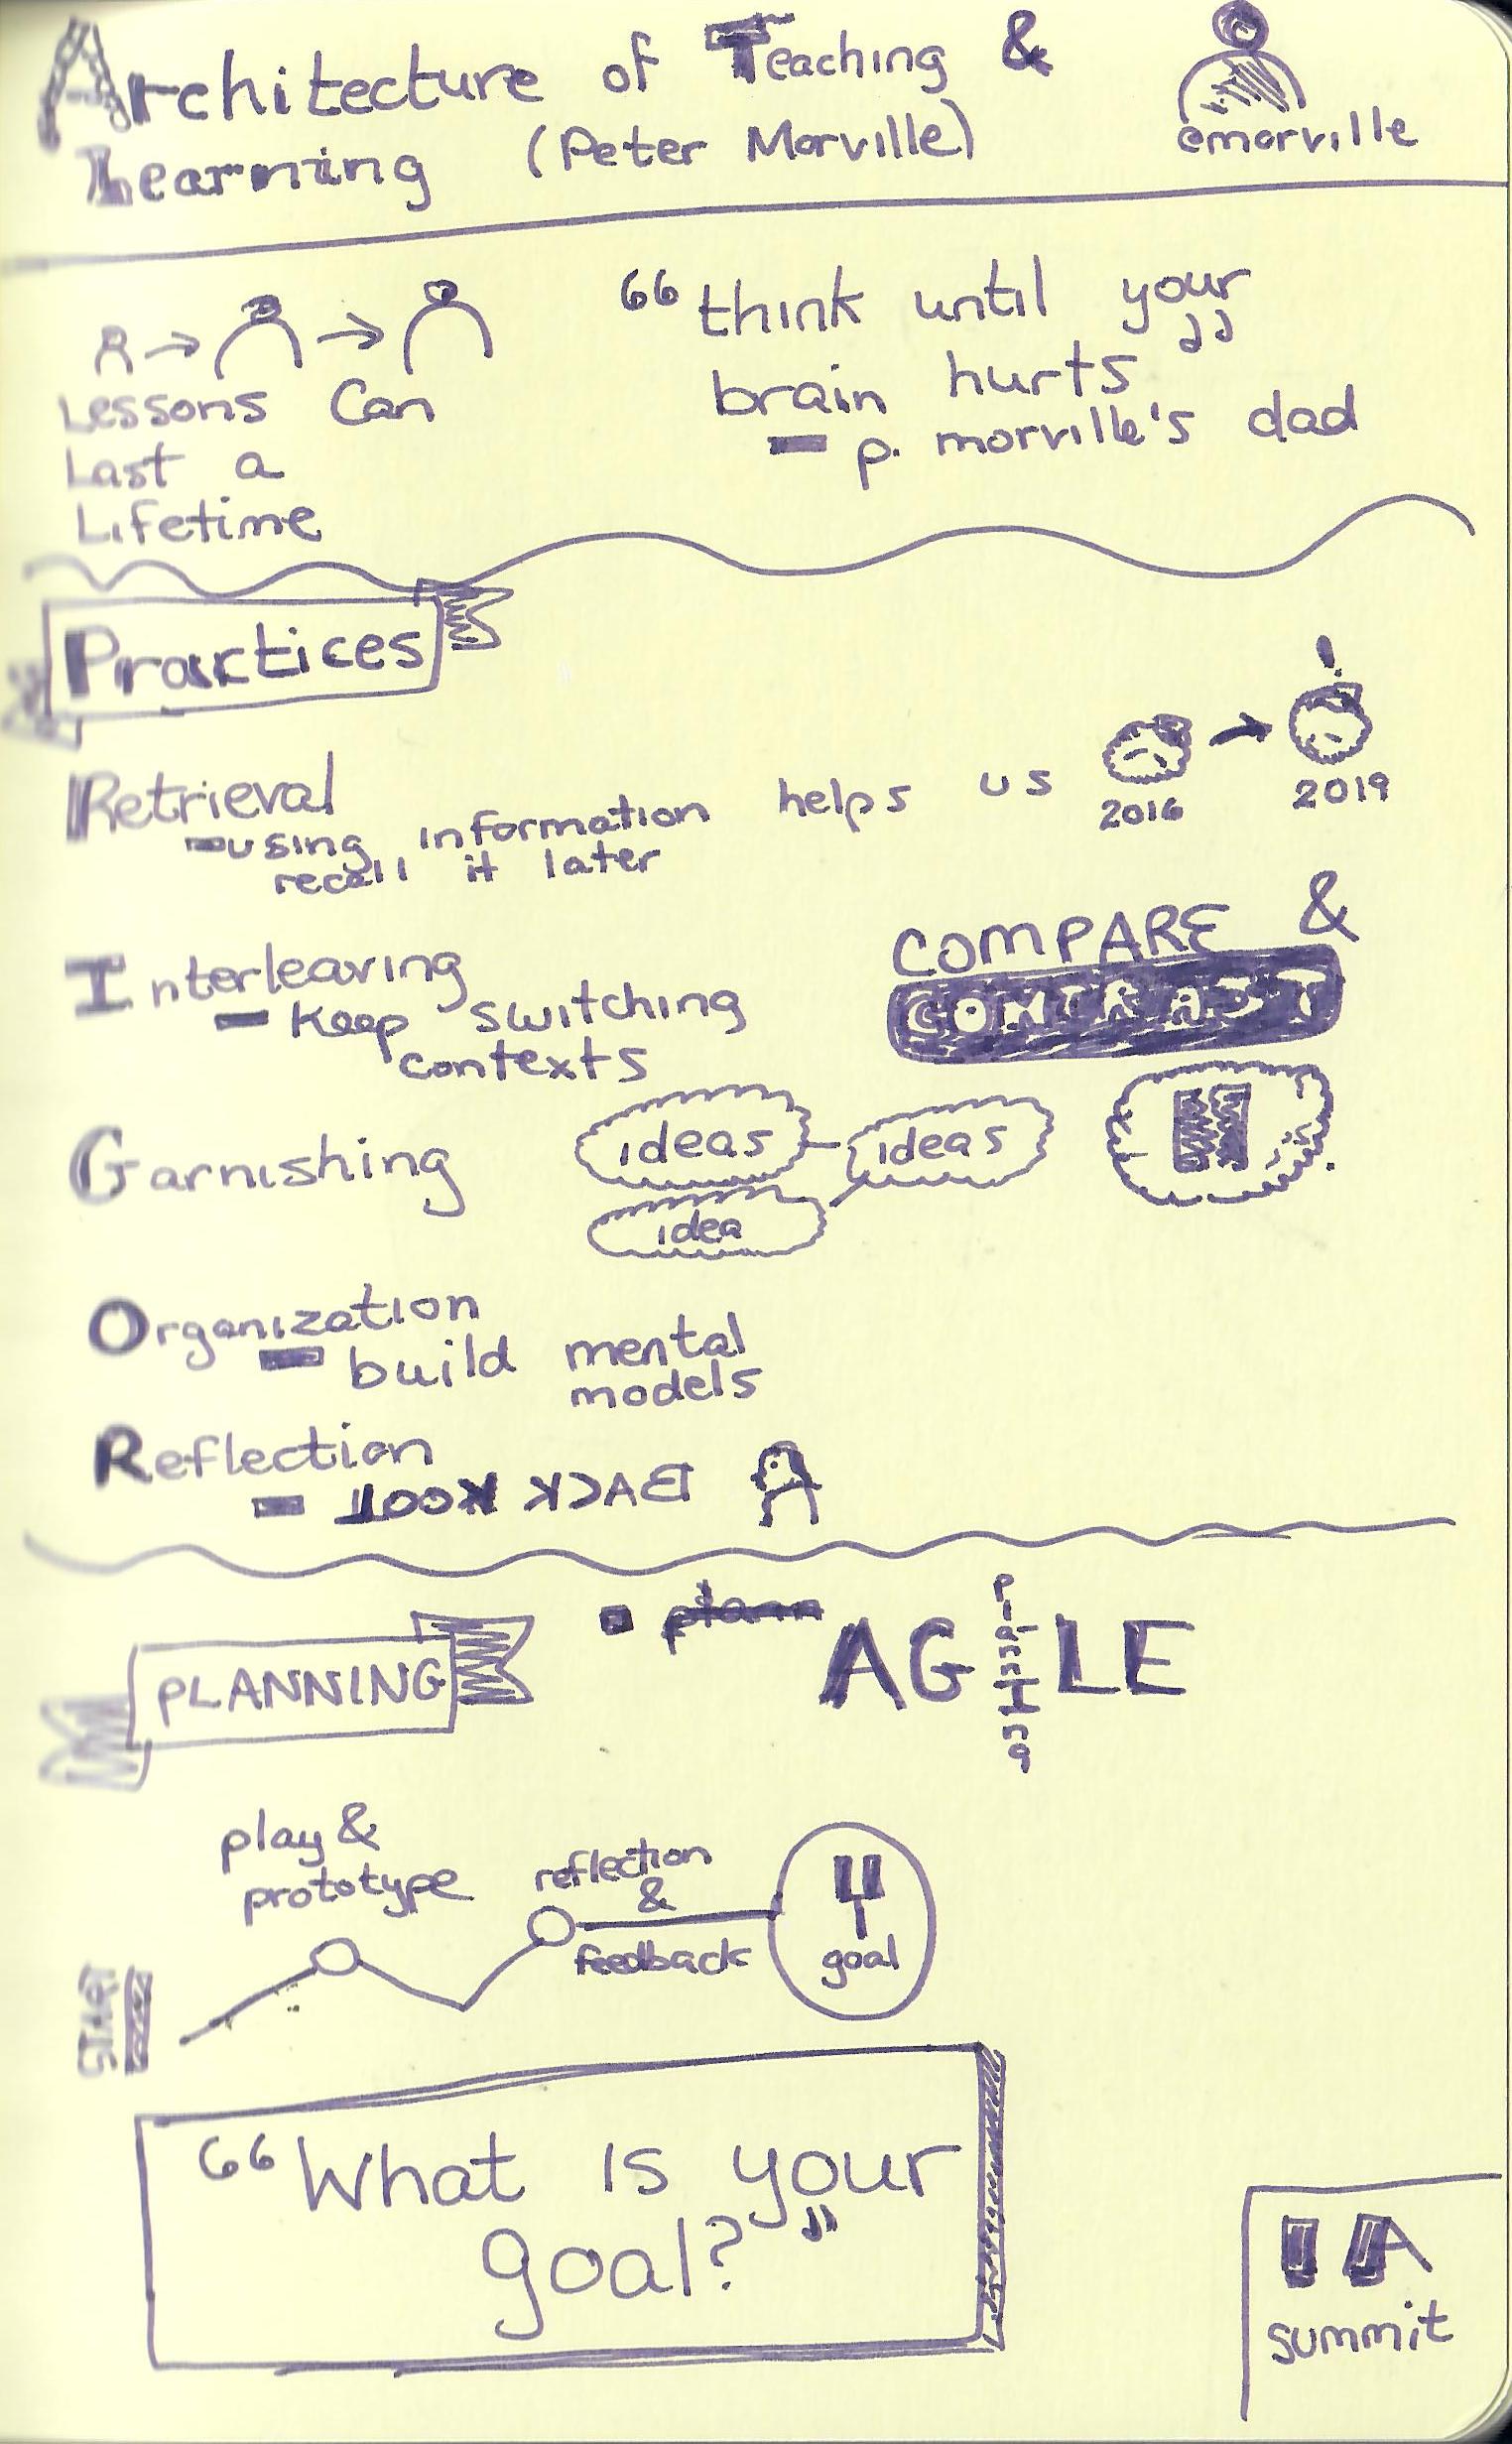 Architecture of Teaching &
Learning (Peter Morville)
@morville
Lessons Can
Last a
Lifetime
“think until your
brain hurts”
- p. morville's dad
Practices
Retrieval
- using information helps us
recall it later
2016 → 2019
!
Interleaving
- Keep switching
contexts
COMPARE &
CONTRAST
Garnishing
ideas
ideas
idea
Organization
- build mental
models
Reflection
- LOOK BACK
PLANNING
AGILE
play &
prototype
reflection
&
feedback
goal
START
“What is your
goal?”
IA
summit